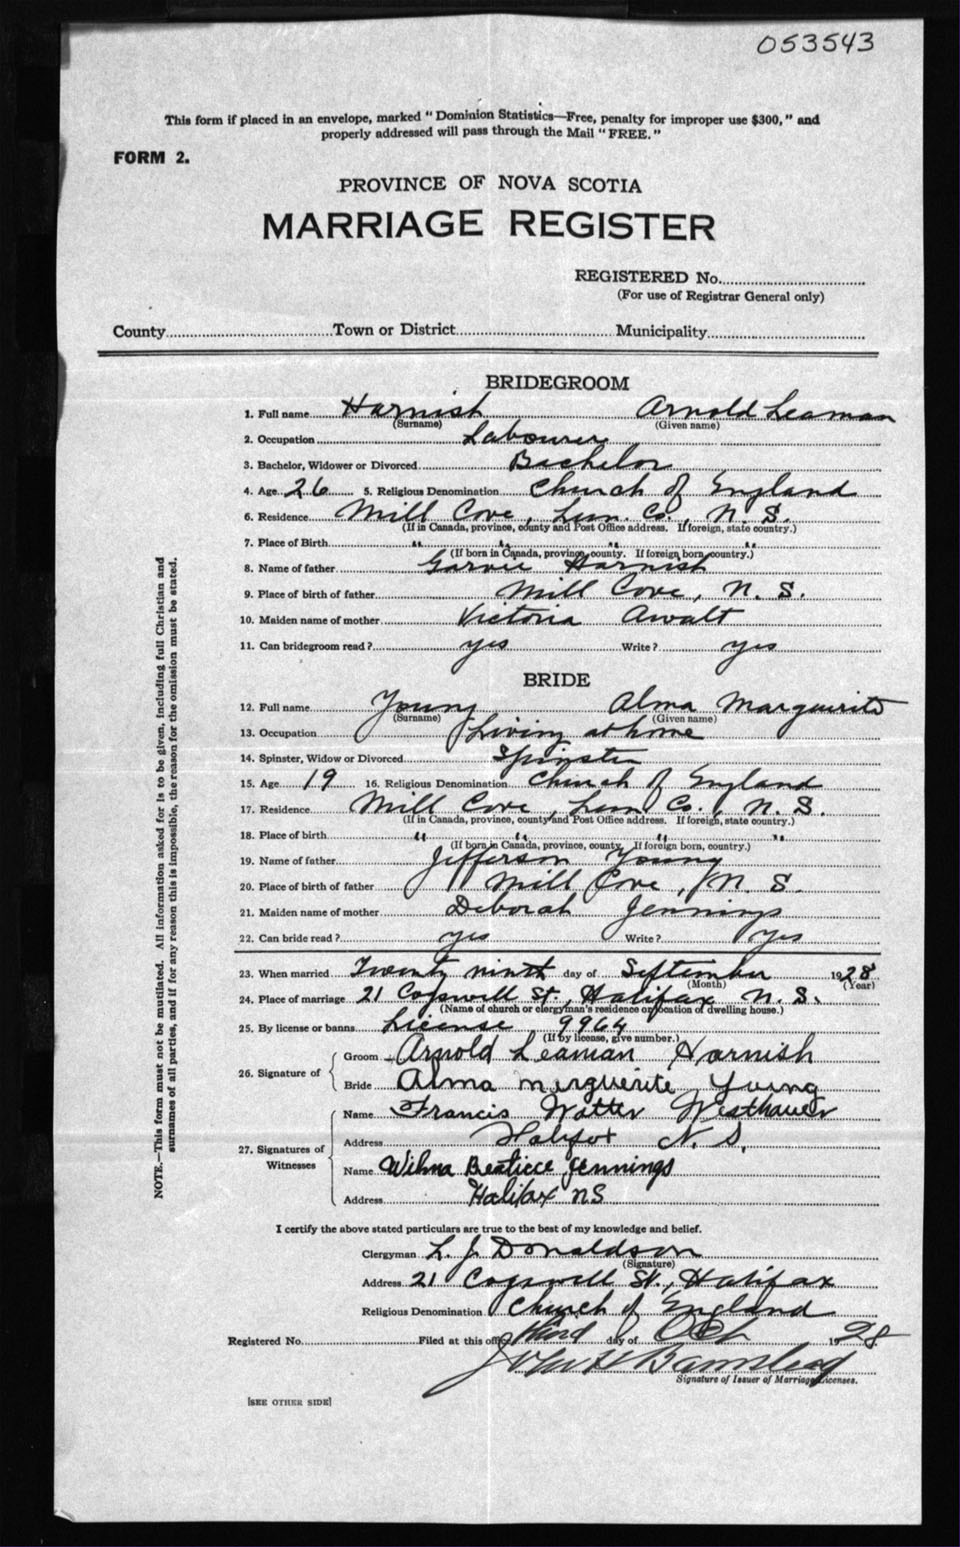 053543
This form if placed in an envelope, marked "Dominion Statistics—Free, penalty for improper use $300," and
properly addressed will pass through the Mail "FREE."
FORM 2.
PROVINCE OF NOVA SCOTIA
MARRIAGE REGISTER
REGISTERED No.
(For use of Registrar General only)
County Town or District Municipality
BRIDEGROOM
1. Full name Harnish Arnold Leaman
(Surname) (Given name)
2. Occupation Labourer
3. Bachelor, Widower or Divorced Bachelor
4. Age 26 5. Religious Denomination Church of England
6. Residence Mill Cove, Lun. Co., N. S.
(If in Canada, province, county and Post Office address. If foreign, state country.)
7. Place of Birth " " " "
(If born in Canada, province, county. If foreign born, country.)
8. Name of father Garvie Harnish
9. Place of birth of father Mill Cove, N. S.
10. Maiden name of mother Victoria Awalt
11. Can bridegroom read? yes Write? yes
BRIDE
12. Full name Young Alma Marguerite
(Surname) (Given name)
13. Occupation Living at home
14. Spinster, Widow or Divorced Spinster
15. Age 19 16. Religious Denomination Church of England
17. Residence Mill Cove, Lun Co., N. S.
(If in Canada, province, county and Post Office address. If foreign, state country.)
18. Place of birth " " " "
(If born in Canada, province, county. If foreign born, country.)
19. Name of father Jefferson Young
20. Place of birth of father Mill Cove, N. S.
21. Maiden name of mother Deborah Jennings
22. Can bride read? yes Write? yes
23. When married Twenty ninth day of September 1928
(Month) (Year)
24. Place of marriage 21 Cogswell St., Halifax N. S.
(Name of church or clergyman's residence or location of dwelling house.)
25. By license or banns License 9964
(If by license, give number.)
26. Signature of
Groom Arnold Leaman Harnish
Bride Alma Merguerite Young
27. Signatures of Witnesses
Name Francis Walter Westhaver
Address Halifax N. S.
Name Wilma Beatrice Jennings
Address Halifax NS
I certify the above stated particulars are true to the best of my knowledge and belief.
Clergyman L. J. Donaldson
(Signature)
Address 21 Cogswell St., Halifax
Religious Denomination Church of England
Registered No. Filed at this office third day of Oct 1928
John H Barnstead
Signature of Issuer of Marriage Licenses.
[SEE OTHER SIDE]
NOTE.—This form must not be mutilated. All information asked for is to be given, including full Christian and
surnames of all parties, and if for any reason this is impossible, the reason for the omission must be stated.